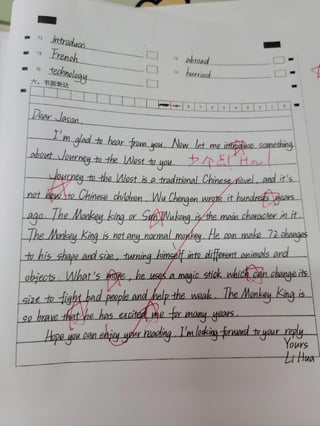 introduce
abroad
French
hurried
technology
六、书面表达
Dear Jason,
I'm glad to hear from you. Now let me introduce something
about Journey to the West to you.
Journey to the West is a traditional Chinese novel, and it's
not new to Chinese children. Wu Chengen wrote it hundreds years
ago. The Monkey king or Sun Wukong is the main character in it.
The Monkey King is not any normal monkey. He can make 72 changes
to his shape and size, turning himself into different animals and
objects. What's more, he uses a magic stick which can change its
size to fight bad people and help the weak. The Monkey King is
so brave that he has excited me for many years.
Hope you can enjoy your reading. I'm looking forward to your reply.
Yours
Li Hua